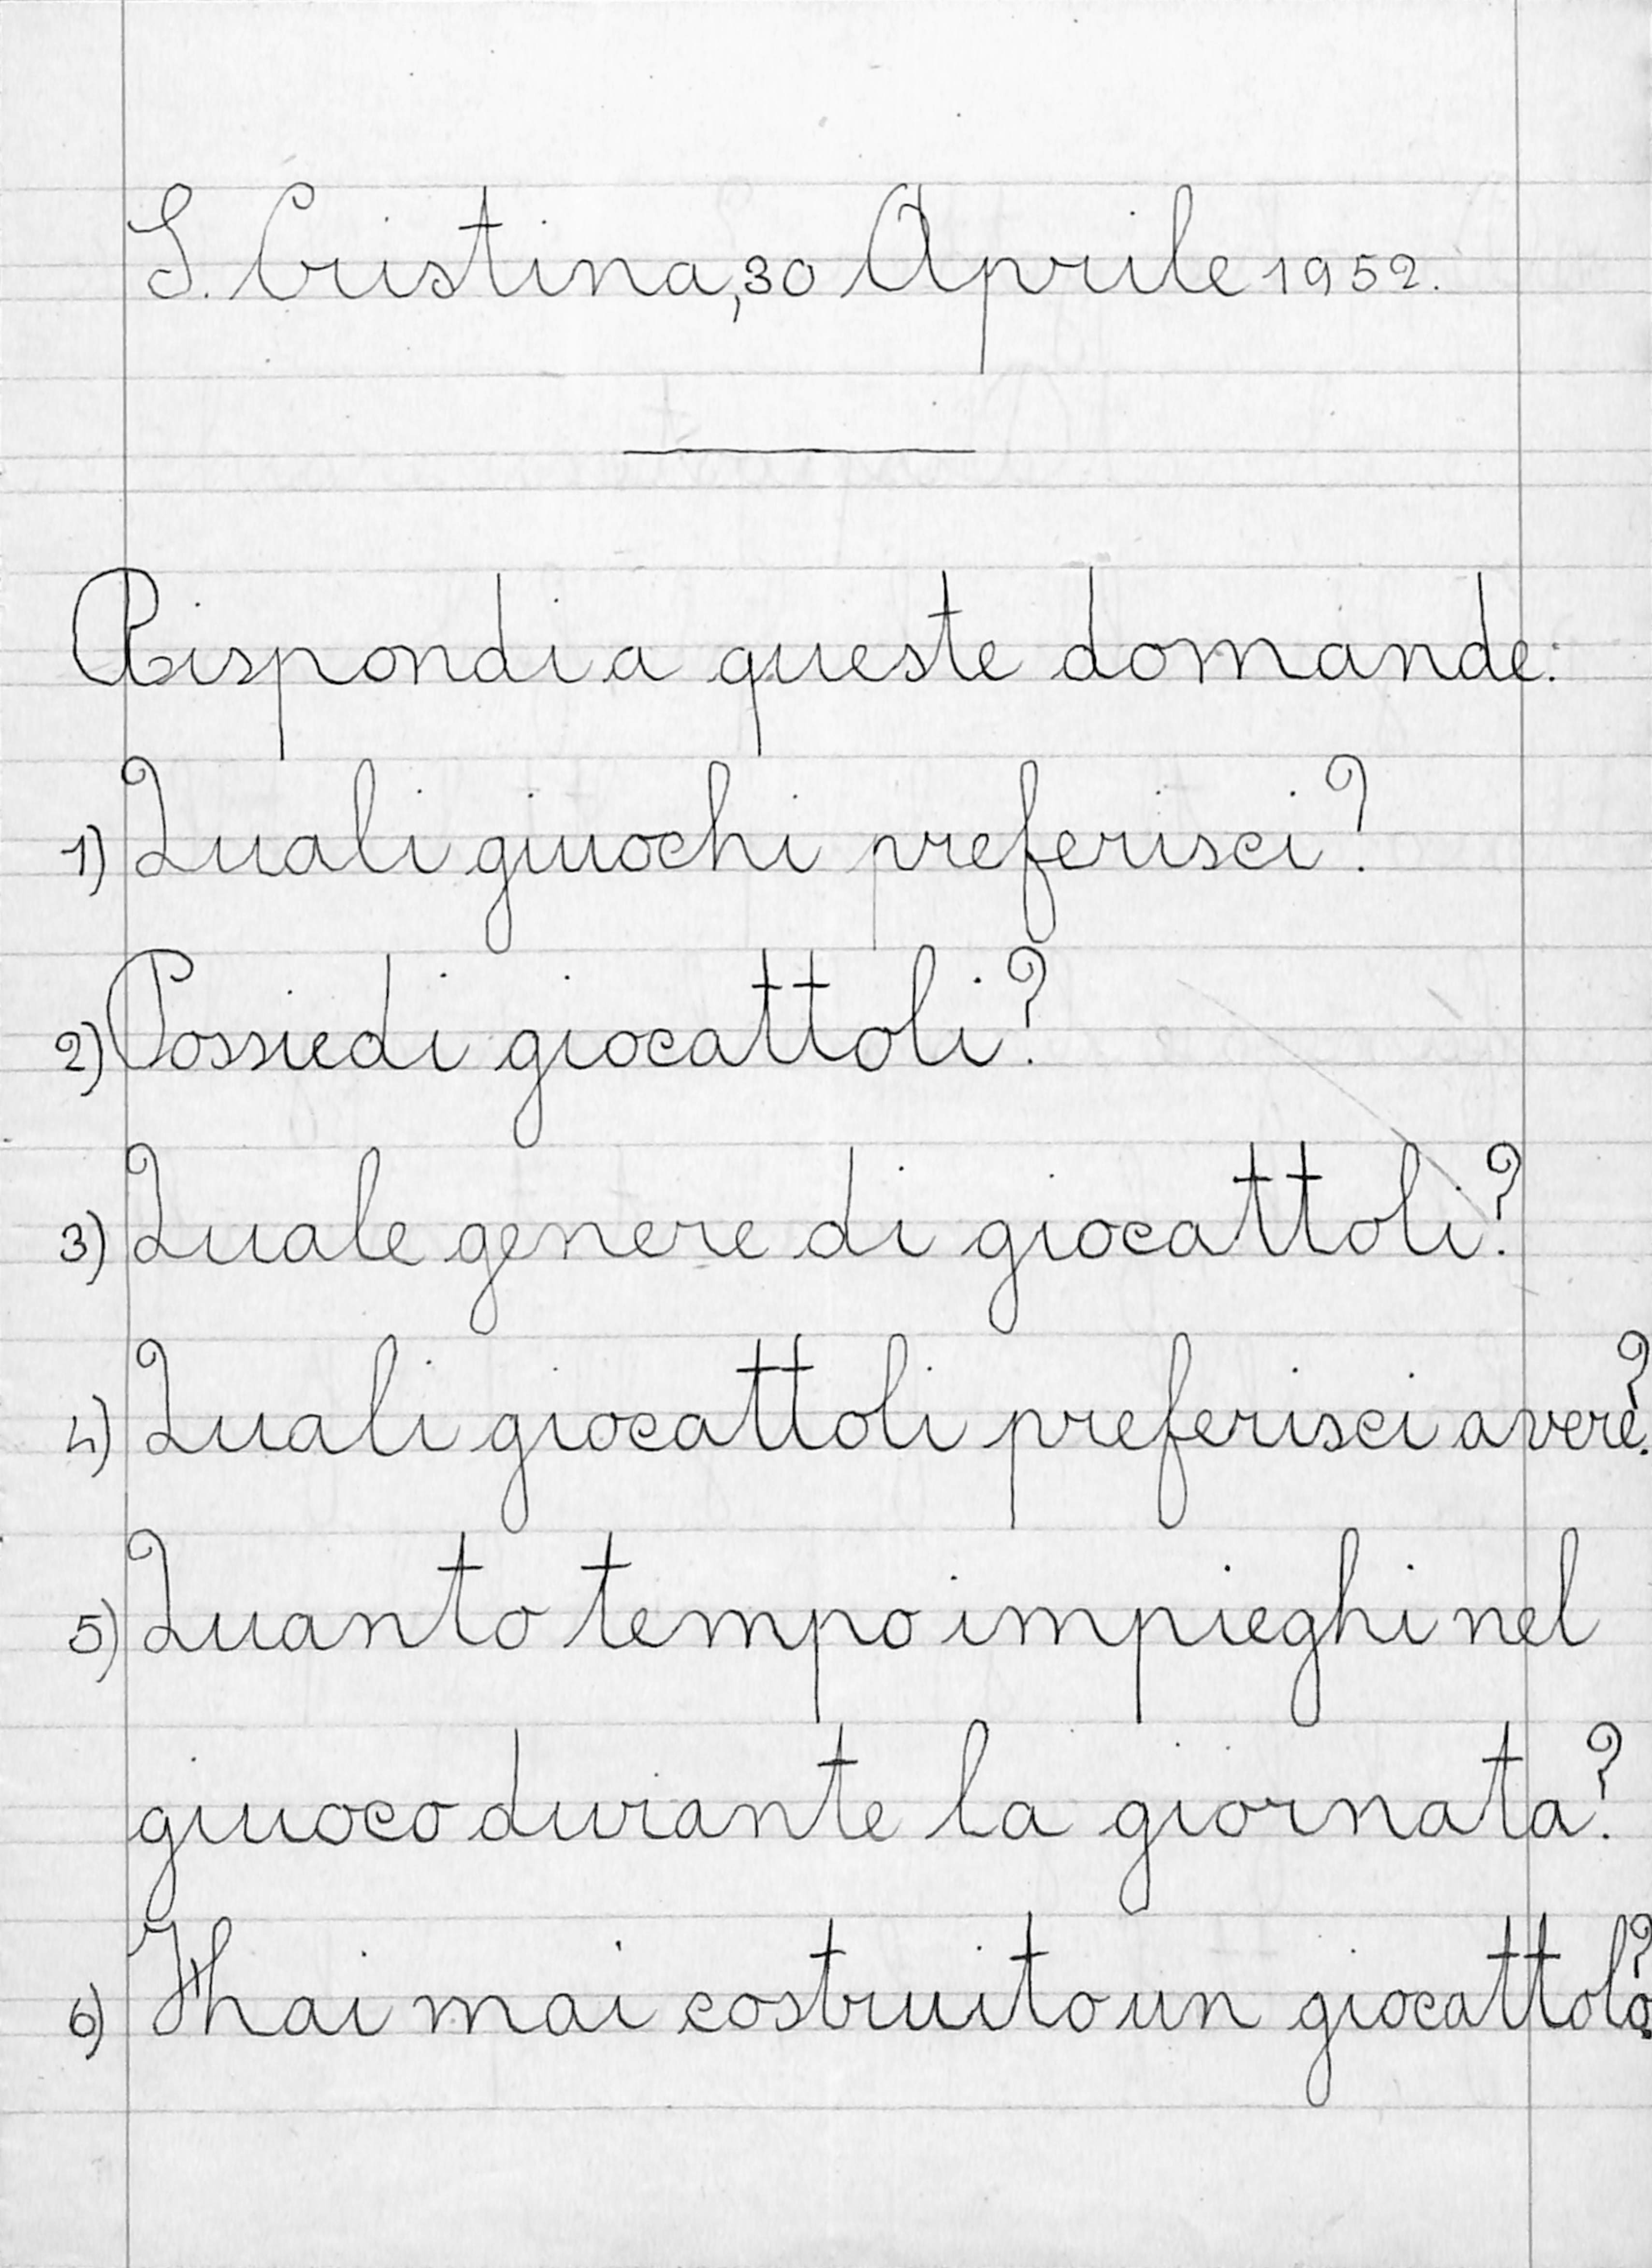 S. Cristina, 30 Aprile 1952.
Rispondi a queste domande:
1) Quali giuochi preferisci?
2) Possiedi giocattoli?
3) Quale genere di giocattoli?
4) Quali giocattoli preferisci avere?
5) Quanto tempo impieghi nel
giuoco durante la giornata?
6) Hai mai costruito un giocattolo?